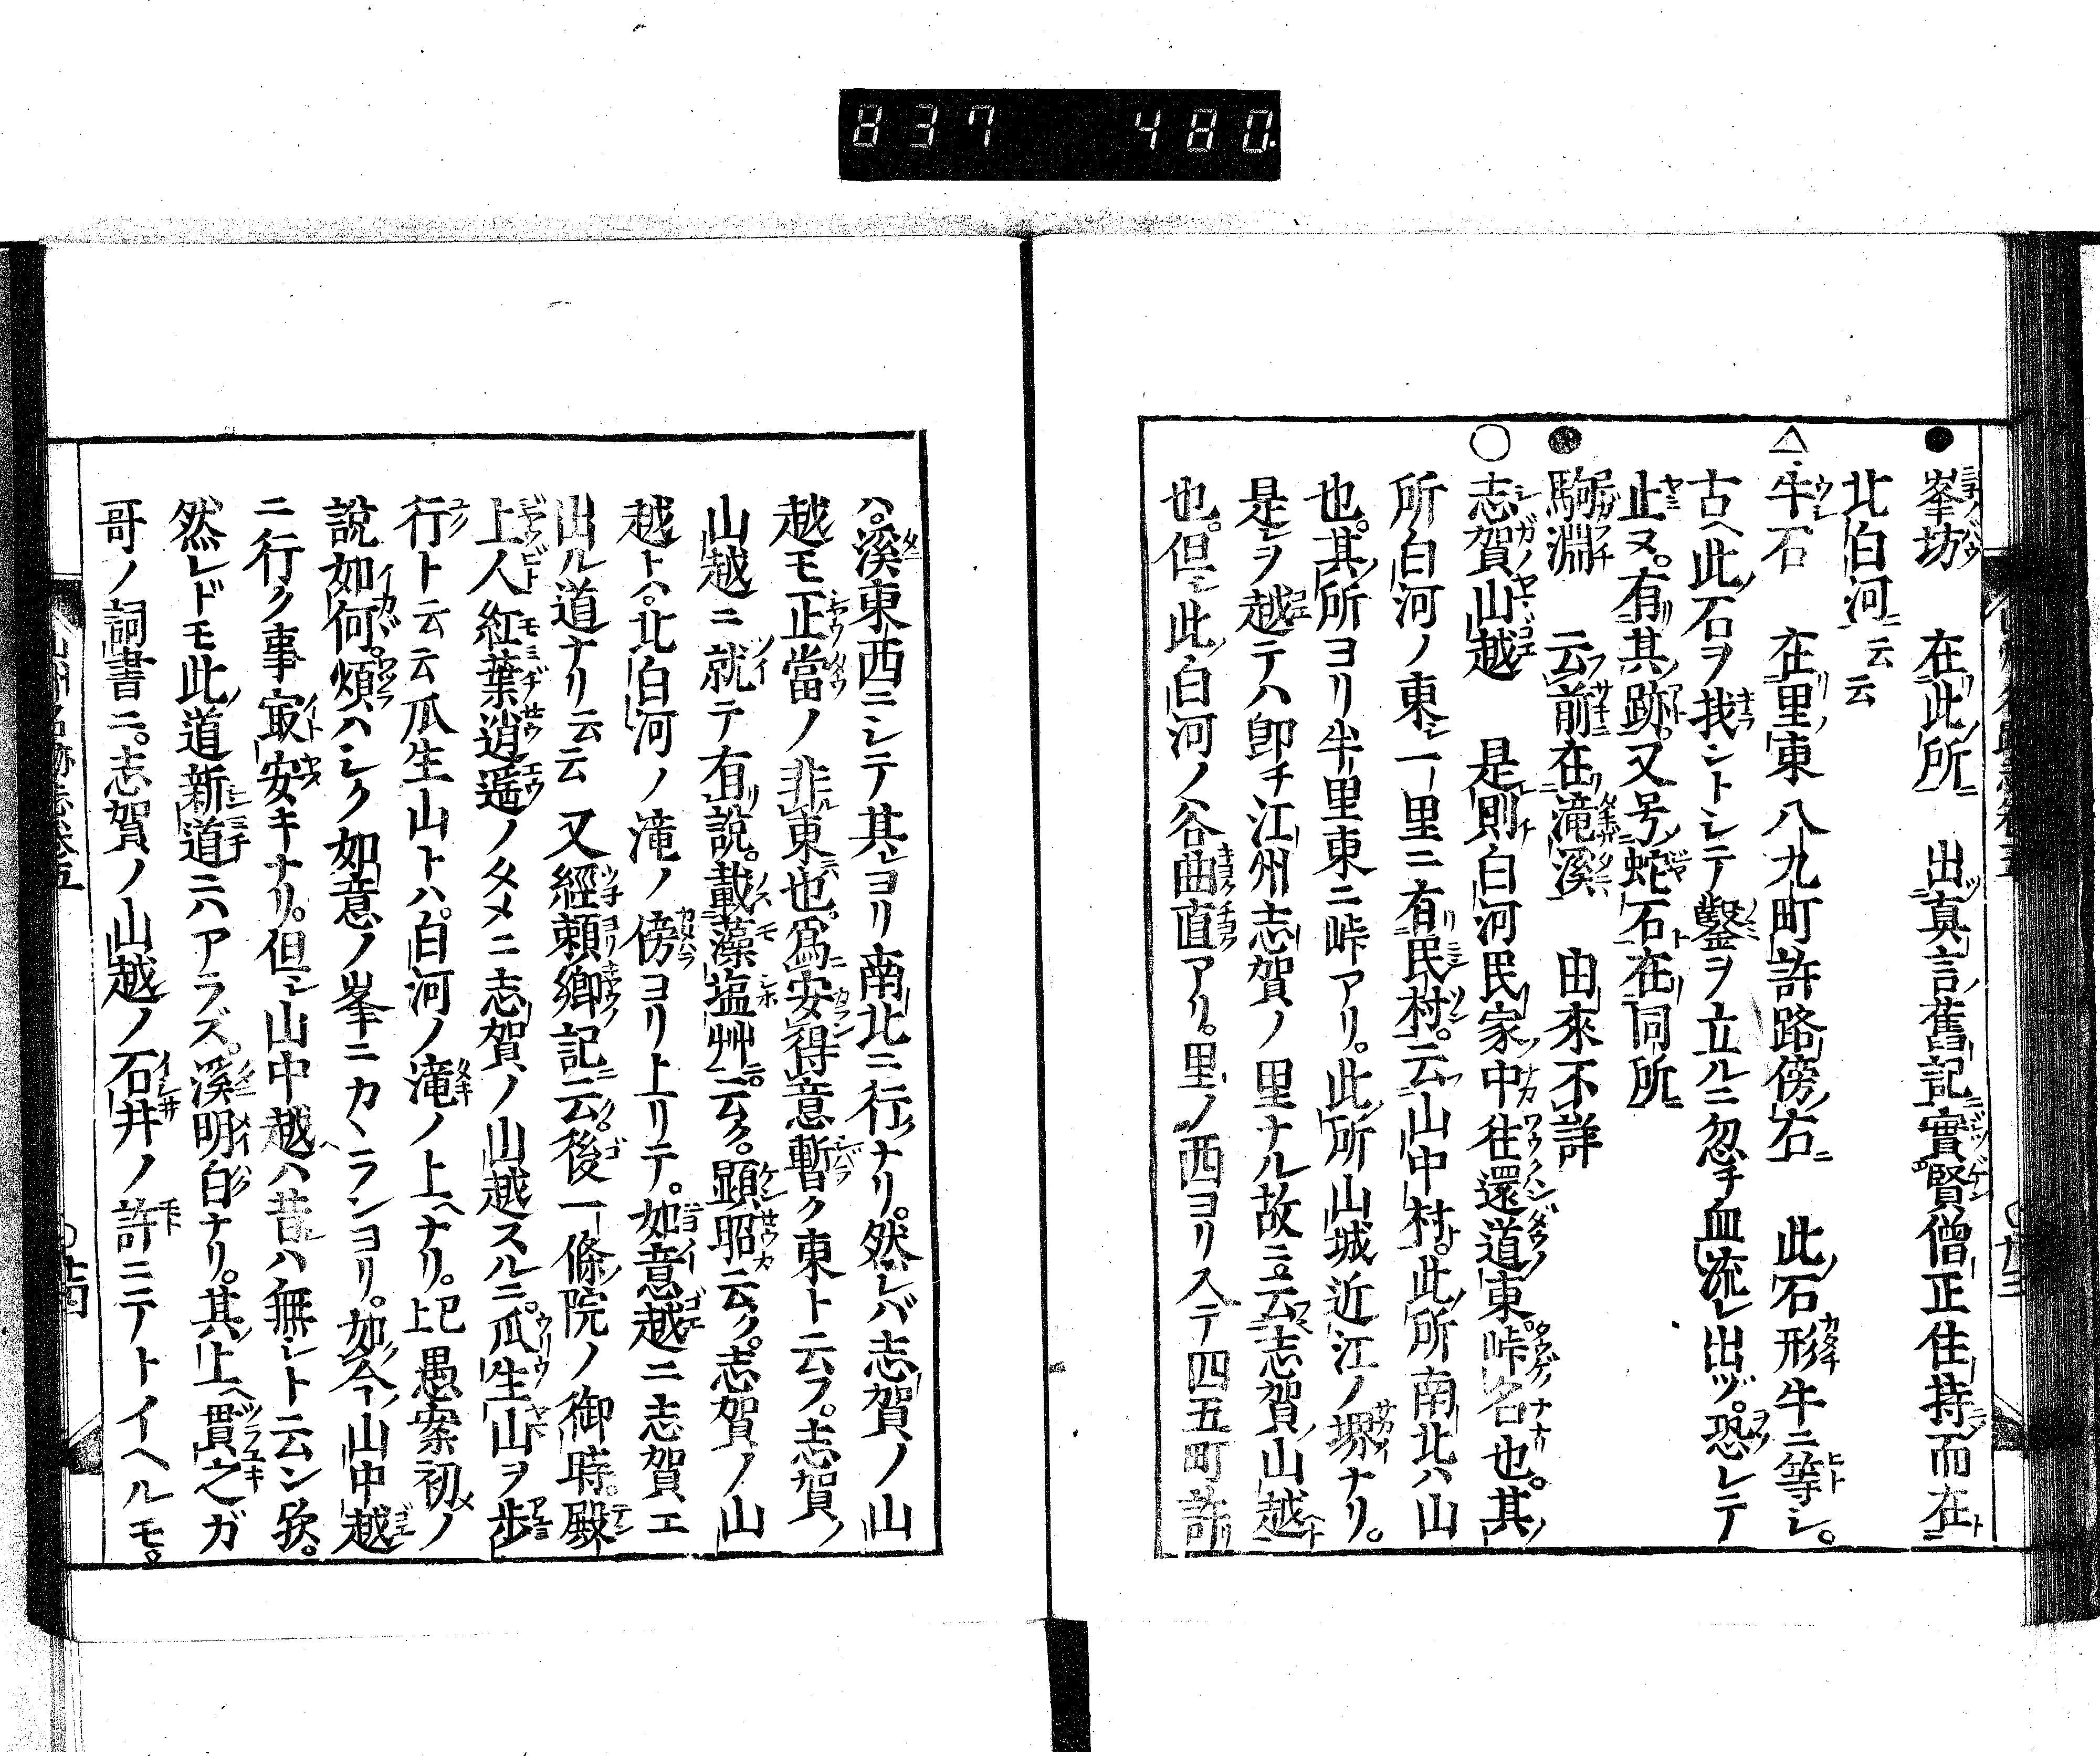 837 480.
●峯坊 在此所 出真言舊記實賢僧正住持而在
北白河云云
△牛石 在里東八九町許路傍右 此石形牛ニ等シ。
古ヘ此石ヲ我ントシテ鑿ヲ立ルニ忽チ血流レ出ヅ。恐レテ
止ヌ。有其跡。又号蛇石在同所
●駒淵 云前在滝溪 由來不詳
○志賀山越 是則白河民家中往還道東。峠名也。其
所白河ノ東一里ニ有民村。云山中村。此所南北ハ山
也。其所ヨリ半里東ニ峠アリ。此所山城近江ノ堺ナリ。
是ヲ越テハ即チ江州志賀ノ里ナル故ニ云志賀山越
也。但シ此白河ノ谷曲直アリ。里ノ西ヨリ入テ四五町許
ハ。溪東西ニシテ其ヨリ南北ニ行ナリ。然レバ志賀ノ山
越モ正當ノ非東也。爲安得意暫ク東ト云フ。志賀ノ
山越ニ就テ有說。載藻塩艸ニ。云ク。顕昭云ク。志賀ノ山
越トハ。北白河ノ滝ノ傍ヨリ上リテ。如意越ニ志賀エ
出ル道ナリ云云 又經頼卿記云。後一條院ノ御時。殿
上人紅葉逍遥ノタメニ志賀ノ山越スルニ。瓜生山ヲ歩
行ト云云瓜生山トハ。白河ノ滝ノ上ヘナリ。已上愚案初ノ
說如何。煩ハシク如意ノ峯ニカヽランヨリ。如今山中越
ニ行ク事㝡安キナリ。但シ山中越ハ昔ハ無シト云ン歟。
然レドモ此道新道ニハアラズ。溪明白ナリ。其上ヘ貫之ガ
哥ノ詞書ニ。志賀ノ山越ノ石井ノ許ニテトイヘルモ。